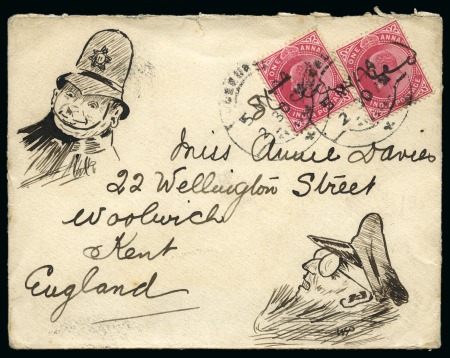 ONE ANNA
INDIA POSTAGE
ONE ANNA
INDIA POSTAGE
Miss Annie Davies
22 Wellington Street
Woolwich
Kent
England